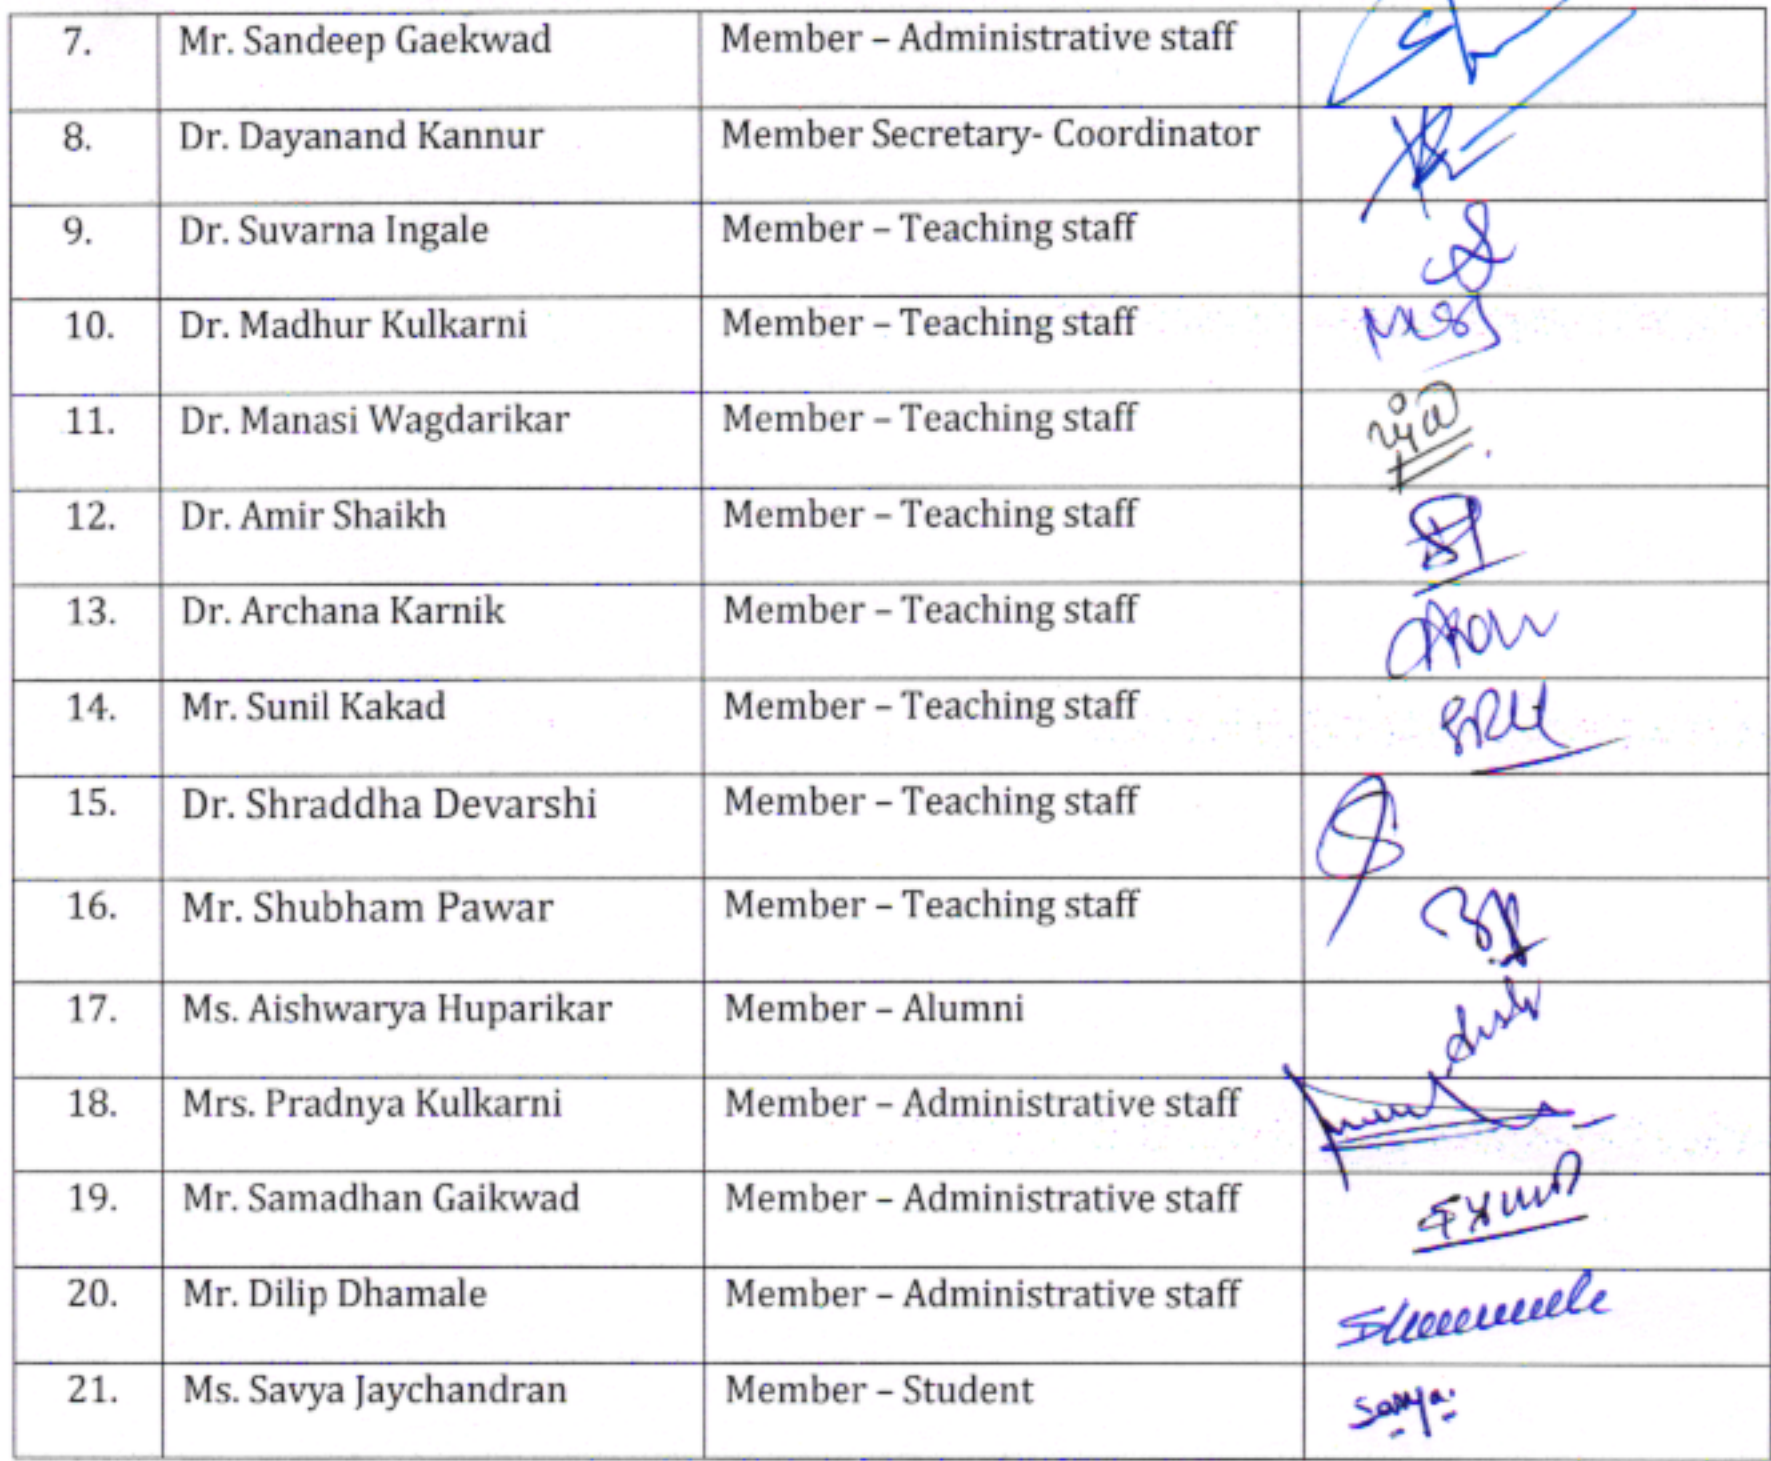 7. Mr. Sandeep Gaekwad Member – Administrative staff
8. Dr. Dayanand Kannur Member Secretary- Coordinator
9. Dr. Suvarna Ingale Member – Teaching staff
10. Dr. Madhur Kulkarni Member – Teaching staff
11. Dr. Manasi Wagdarikar Member – Teaching staff
12. Dr. Amir Shaikh Member – Teaching staff
13. Dr. Archana Karnik Member – Teaching staff
14. Mr. Sunil Kakad Member – Teaching staff
15. Dr. Shraddha Devarshi Member – Teaching staff
16. Mr. Shubham Pawar Member – Teaching staff
17. Ms. Aishwarya Huparikar Member – Alumni
18. Mrs. Pradnya Kulkarni Member – Administrative staff
19. Mr. Samadhan Gaikwad Member – Administrative staff
20. Mr. Dilip Dhamale Member – Administrative staff
21. Ms. Savya Jaychandran Member – Student Savya.